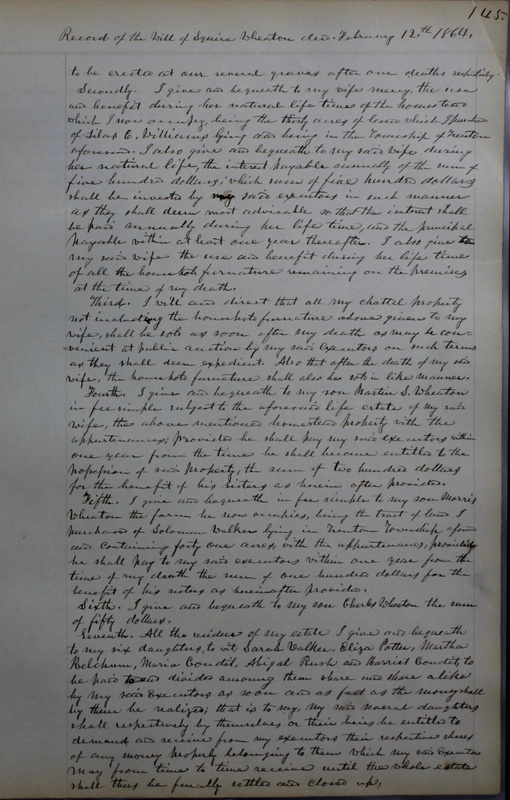 145.
Record of the Will of Squire Wheaton dec. February 12th 1864,
to be erected at our several graves after our deaths respectively.
Secondly. I give and bequeath to my wife mercy the use
and benefit during her natural life time of the homestead
which I now occupy, being the thirty acres of land which I purchased
of Silas C. Williams lying and being in the Township of Trenton
aforesaid. I also give and bequeath to my said wife during
her natural life, the interest payable annually of the sum of
five hundred dollars; which sum of five hundred dollars
shall be invested by my said executors in such manner
as they shall deem most advisable so that the interest shall
be paid annually during her life time, and the principal
payable within at least one year thereafter. I also give to
my said wife the use and benefit during her life time
of all the household furnature remaining on the premises
at the time of my death.
Third. I will and direct that all my chattel property
not including the household furnature above given to my
wife, shall be sold as soon after my death as may be con-
venient at public auction by my said Executors on such terms
as they shall deem expedient. Also that after the death of my said
wife, the household furnature shall also be sold in like manner.
Fourth. I give and bequeath to my son Martin S. Wheaton
in fee simple subject to the aforesaid life estate of my said
wife, the above mentioned homestead property with the
appurtenances; Provided he shall pay my said executors within
one year from the time he shall become entitled to the
possession of said property, the sum of two hundred dollars
for the benefit of his sisters as herein after provided.
Fifth. I give and bequeath in fee simple to my son Morris
Wheaton the farm he now occupies, being the tract of land I
purchased of Soloman Walker lying in Trenton Township aforesaid
and containing forty one acres, with the appurtenances, provided
he shall pay to my said executors within one year from the
time of my death the sum of one hundred dollars for the
benefit of his sisters as hereinafter provided.
Sixth. I give and bequeath to my son Charles Wheaton the sum
of fifty dollars.
Seventh. All the residue of my estate I give and bequeath
to my six daughters, to wit, Sarah Walker, Eliza Potter, Martha
Belchum, Maria Condit, Abigal Rush and Harriet Condit, to
be paid and divided amoung them share and share alike
by my said Executors as soon and as fast as the money shall
by them be realized; that is to say, my said several daughters
shall respectively by themselves or their heirs be entitled to
demand and receive from my executors their respective shares
of any money properly belonging to them which my said Executors
may from time to time receive until the whole estate
shall thus be finally settled and closed up,